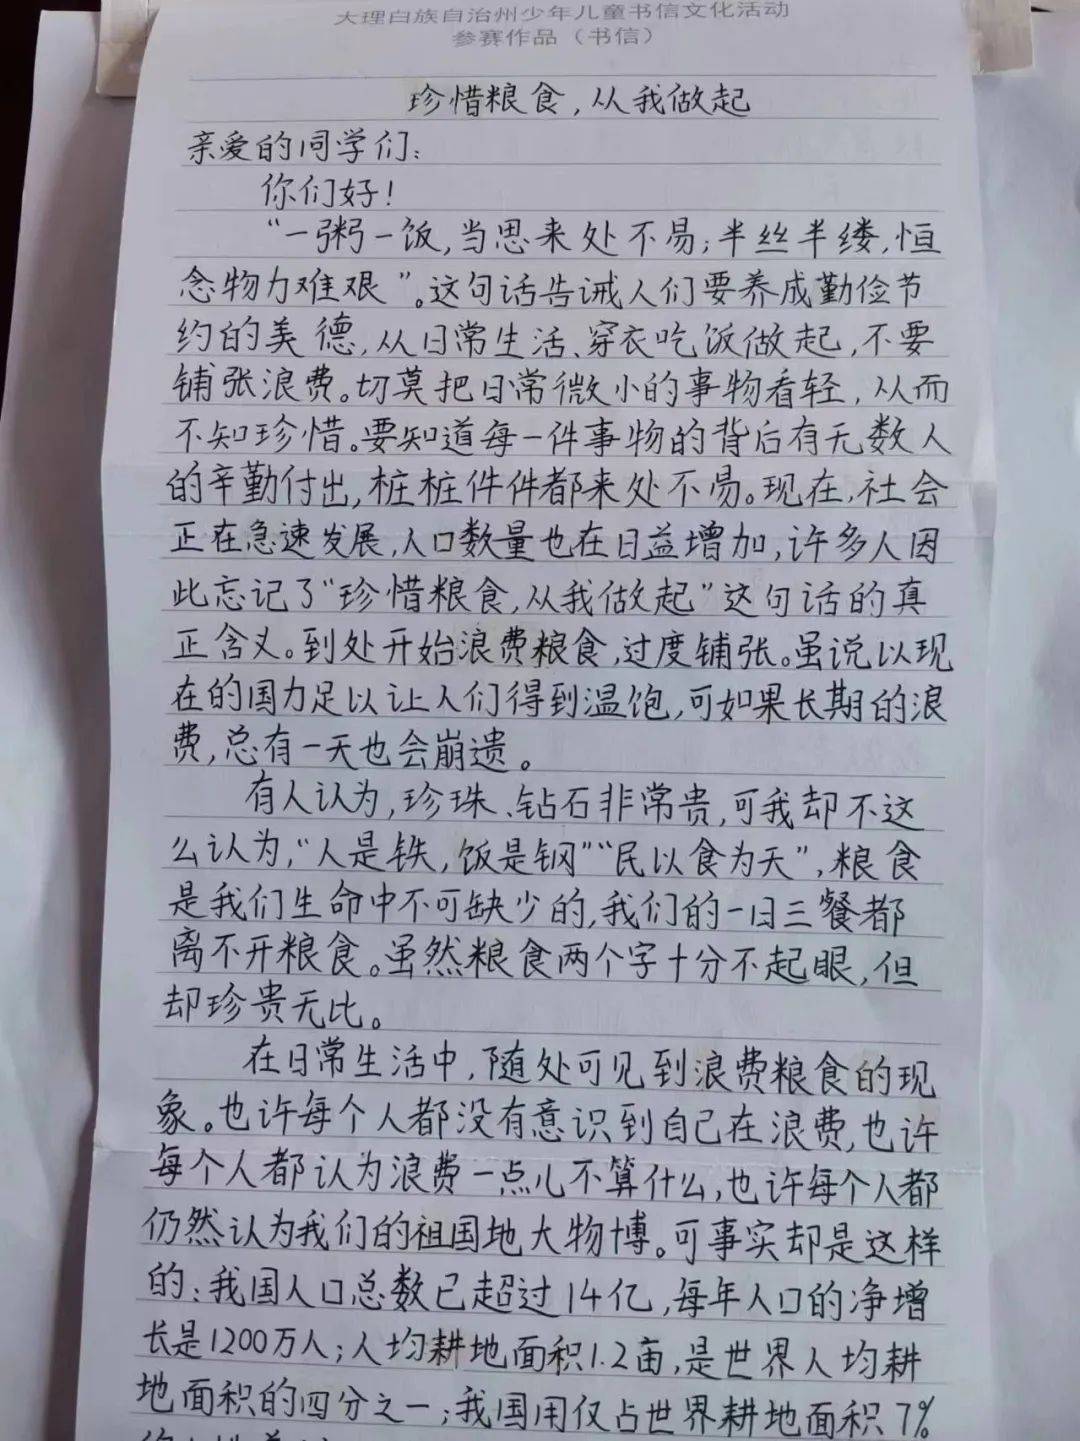 大理白族自治州少年儿童书信文化活动
参赛作品（书信）
珍惜粮食，从我做起
亲爱的同学们：
你们好！
“一粥一饭，当思来处不易；半丝半缕，恒
念物力难艰”。这句话告诫人们要养成勤俭节
约的美德，从日常生活、穿衣吃饭做起，不要
铺张浪费。切莫把日常微小的事物看轻，从而
不知珍惜。要知道每一件事物的背后有无数人
的辛勤付出，桩桩件件都来处不易。现在，社会
正在急速发展，人口数量也在日益增加，许多人因
此忘记了“珍惜粮食，从我做起”这句话的真
正含义。到处开始浪费粮食，过度铺张。虽说以现
在的国力足以让人们得到温饱，可如果长期的浪
费，总有一天也会崩遗。
有人认为，珍珠、钻石非常贵，可我却不这
么认为，“人是铁，饭是钢”“民以食为天”，粮食
是我们生命中不可缺少的，我们的一日三餐都
离不开粮食。虽然粮食两个字十分不起眼，但
却珍贵无比。
在日常生活中，随处可见到浪费粮食的现
象。也许每个人都没有意识到自己在浪费，也许
每个人都认为浪费一点儿不算什么，也许每个人都
仍然认为我们的祖国地大物博。可事实却是这样
的：我国人口总数已超过14亿，每年人口的净增
长是1200万人；人均耕地面积1.2亩，是世界人均耕
地面积的四分之一；我国用仅占世界耕地面积7%